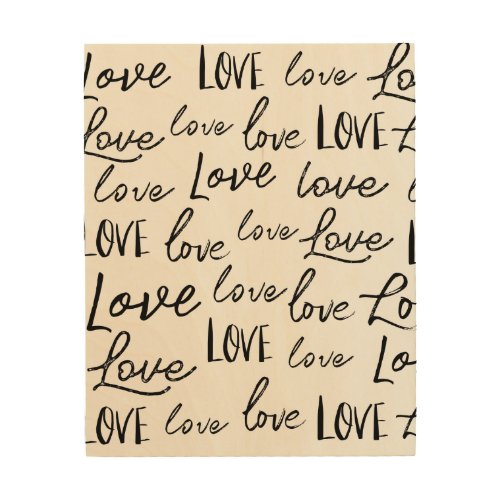 Love LOVE love Lo
Love love love LOVE L
love Love love L
LOVE love love Love LO
Love love love Lo
Love LOVE love Lo
LOVE love love LOVE L